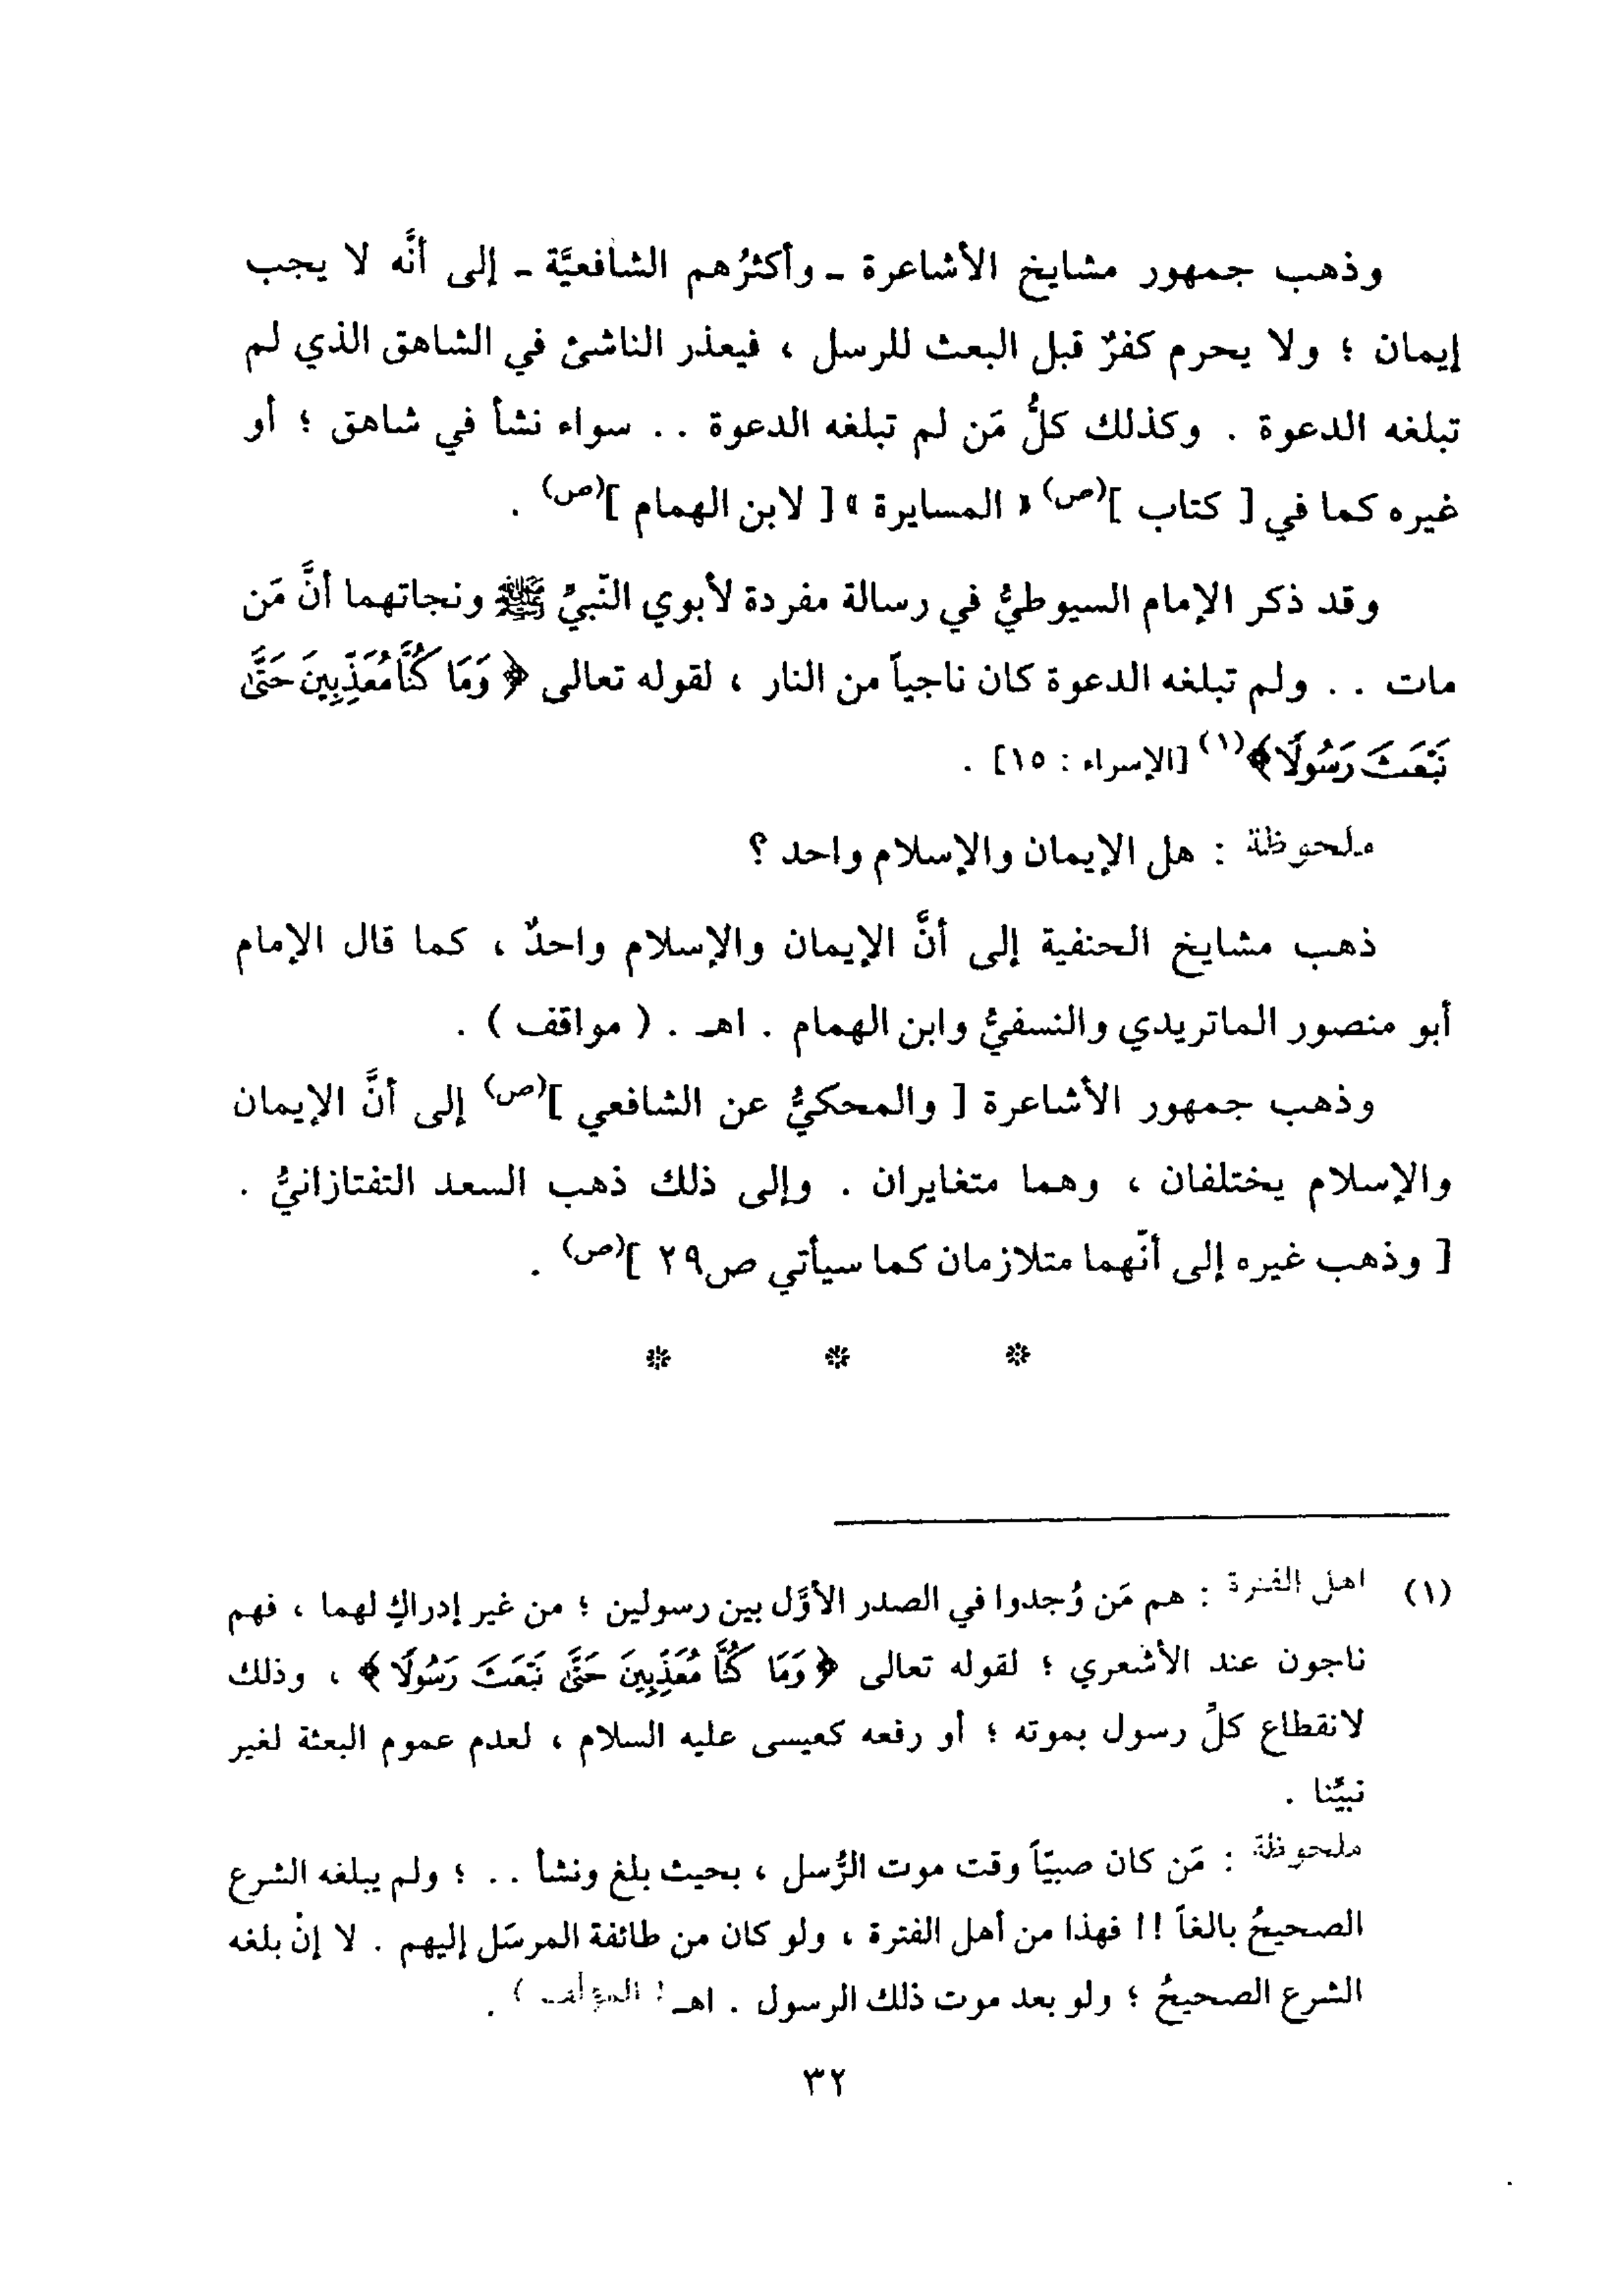 وذهب جمهور مشايخ الأشاعرة ـ وأكثرُهم الشافعيَّة ـ إلى أنَّه لا يجب
إيمان ؛ ولا يحرم كفرٌ قبل البعث للرسل ، فيعذر الناشئ في الشاهق الذي لم
تبلغه الدعوة . وكذلك كلُّ مَن لم تبلغه الدعوة . . سواء نشأ في شاهق ؛ أو
غيره كما في [ كتاب ](ص) « المسايرة » [ لابن الهمام ](ص) .
وقد ذكر الإمام السيوطيُّ في رسالة مفردة لأبوي النّبيِّ ﷺ ونجاتهما أنَّ مَن
مات . . ولم تبلغه الدعوة كان ناجياً من النار ، لقوله تعالى ﴿ وَمَا كُنَّا مُعَذِّبِينَ حَتَّىٰ
نَبْعَثَ رَسُولًا ﴾(١) [الإسراء : ١٥] .
ملحوظة : هل الإيمان والإسلام واحد ؟
ذهب مشايخ الحنفية إلى أنَّ الإيمان والإسلام واحدٌ ، كما قال الإمام
أبو منصور الماتريدي والنسفيُّ وابن الهمام . اهـ . ( مواقف ) .
وذهب جمهور الأشاعرة [ والمحكيُّ عن الشافعي ](ص) إلى أنَّ الإيمان
والإسلام يختلفان ، وهما متغايران . وإلى ذلك ذهب السعد التفتازانيُّ .
[ وذهب غيره إلى أنّهما متلازمان كما سيأتي ص٢٩ ](ص) .
* * *
(١) اهل الفترة : هم مَن وُجدوا في الصدر الأوَّل بين رسولين ؛ من غير إدراكٍ لهما ، فهم
ناجون عند الأشعري ؛ لقوله تعالى ﴿ وَمَا كُنَّا مُعَذِّبِينَ حَتَّىٰ نَبْعَثَ رَسُولًا ﴾ ، وذلك
لانقطاع كلِّ رسول بموته ؛ أو رفعه كعيسى عليه السلام ، لعدم عموم البعثة لغير
نبيِّنا .
ملحوظة : مَن كان صبيّاً وقت موت الرُّسل ، بحيث بلغ ونشأ . . ؛ ولم يبلغه الشرع
الصحيحُ بالغاً !! فهذا من أهل الفترة ، ولو كان من طائفة المرسَل إليهم . لا إنْ بلغه
الشرع الصحيحُ ؛ ولو بعد موت ذلك الرسول . اهـ ( المؤلف ) .
٣٢